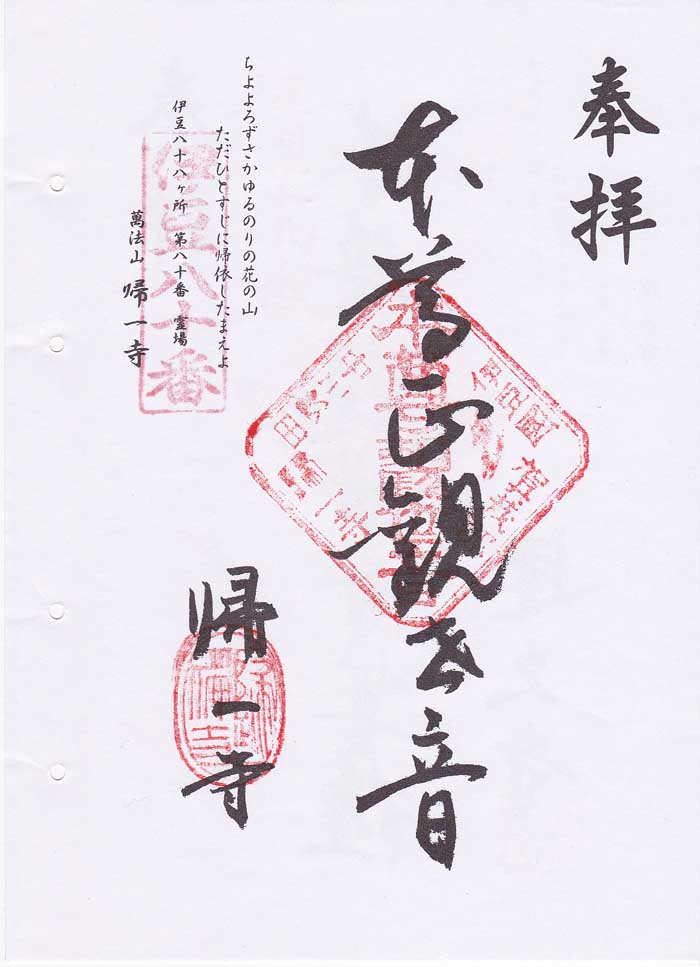 奉拝
本尊正観世音
帰一寺
ちよよろずさかゆるのりの花の山
ただひとすじに帰依したまえよ
伊豆八十八ヶ所 第八十番 霊場
萬法山 帰一寺
伊豆八十番